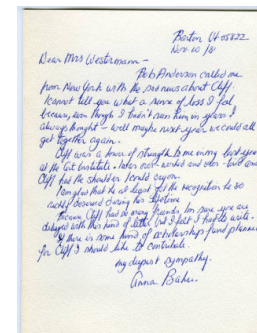 Barton Vt 05822
Nov. 10 /81
Dear Mrs Westermann —
Bob Anderson called me
from New York with the sad news about Cliff.
I cannot tell you what a sense of loss I feel
because, even though I hadn't seen him in years I
always thought — well maybe next year we could all
get together again.
Cliff was a tower of strength to me in my last years
at the Art Institute.
Cliff had the shoulder I could cry on.
I am glad that he at least got the recognition he so
richly deserved during his lifetime
Because Cliff had so many friends, I'm sure you are
deluged with this kind of letter but I felt I had to write.
If there is some kind of scholarship fund planned
for Cliff I should like to contribute.
my deepest sympathy.
Anna